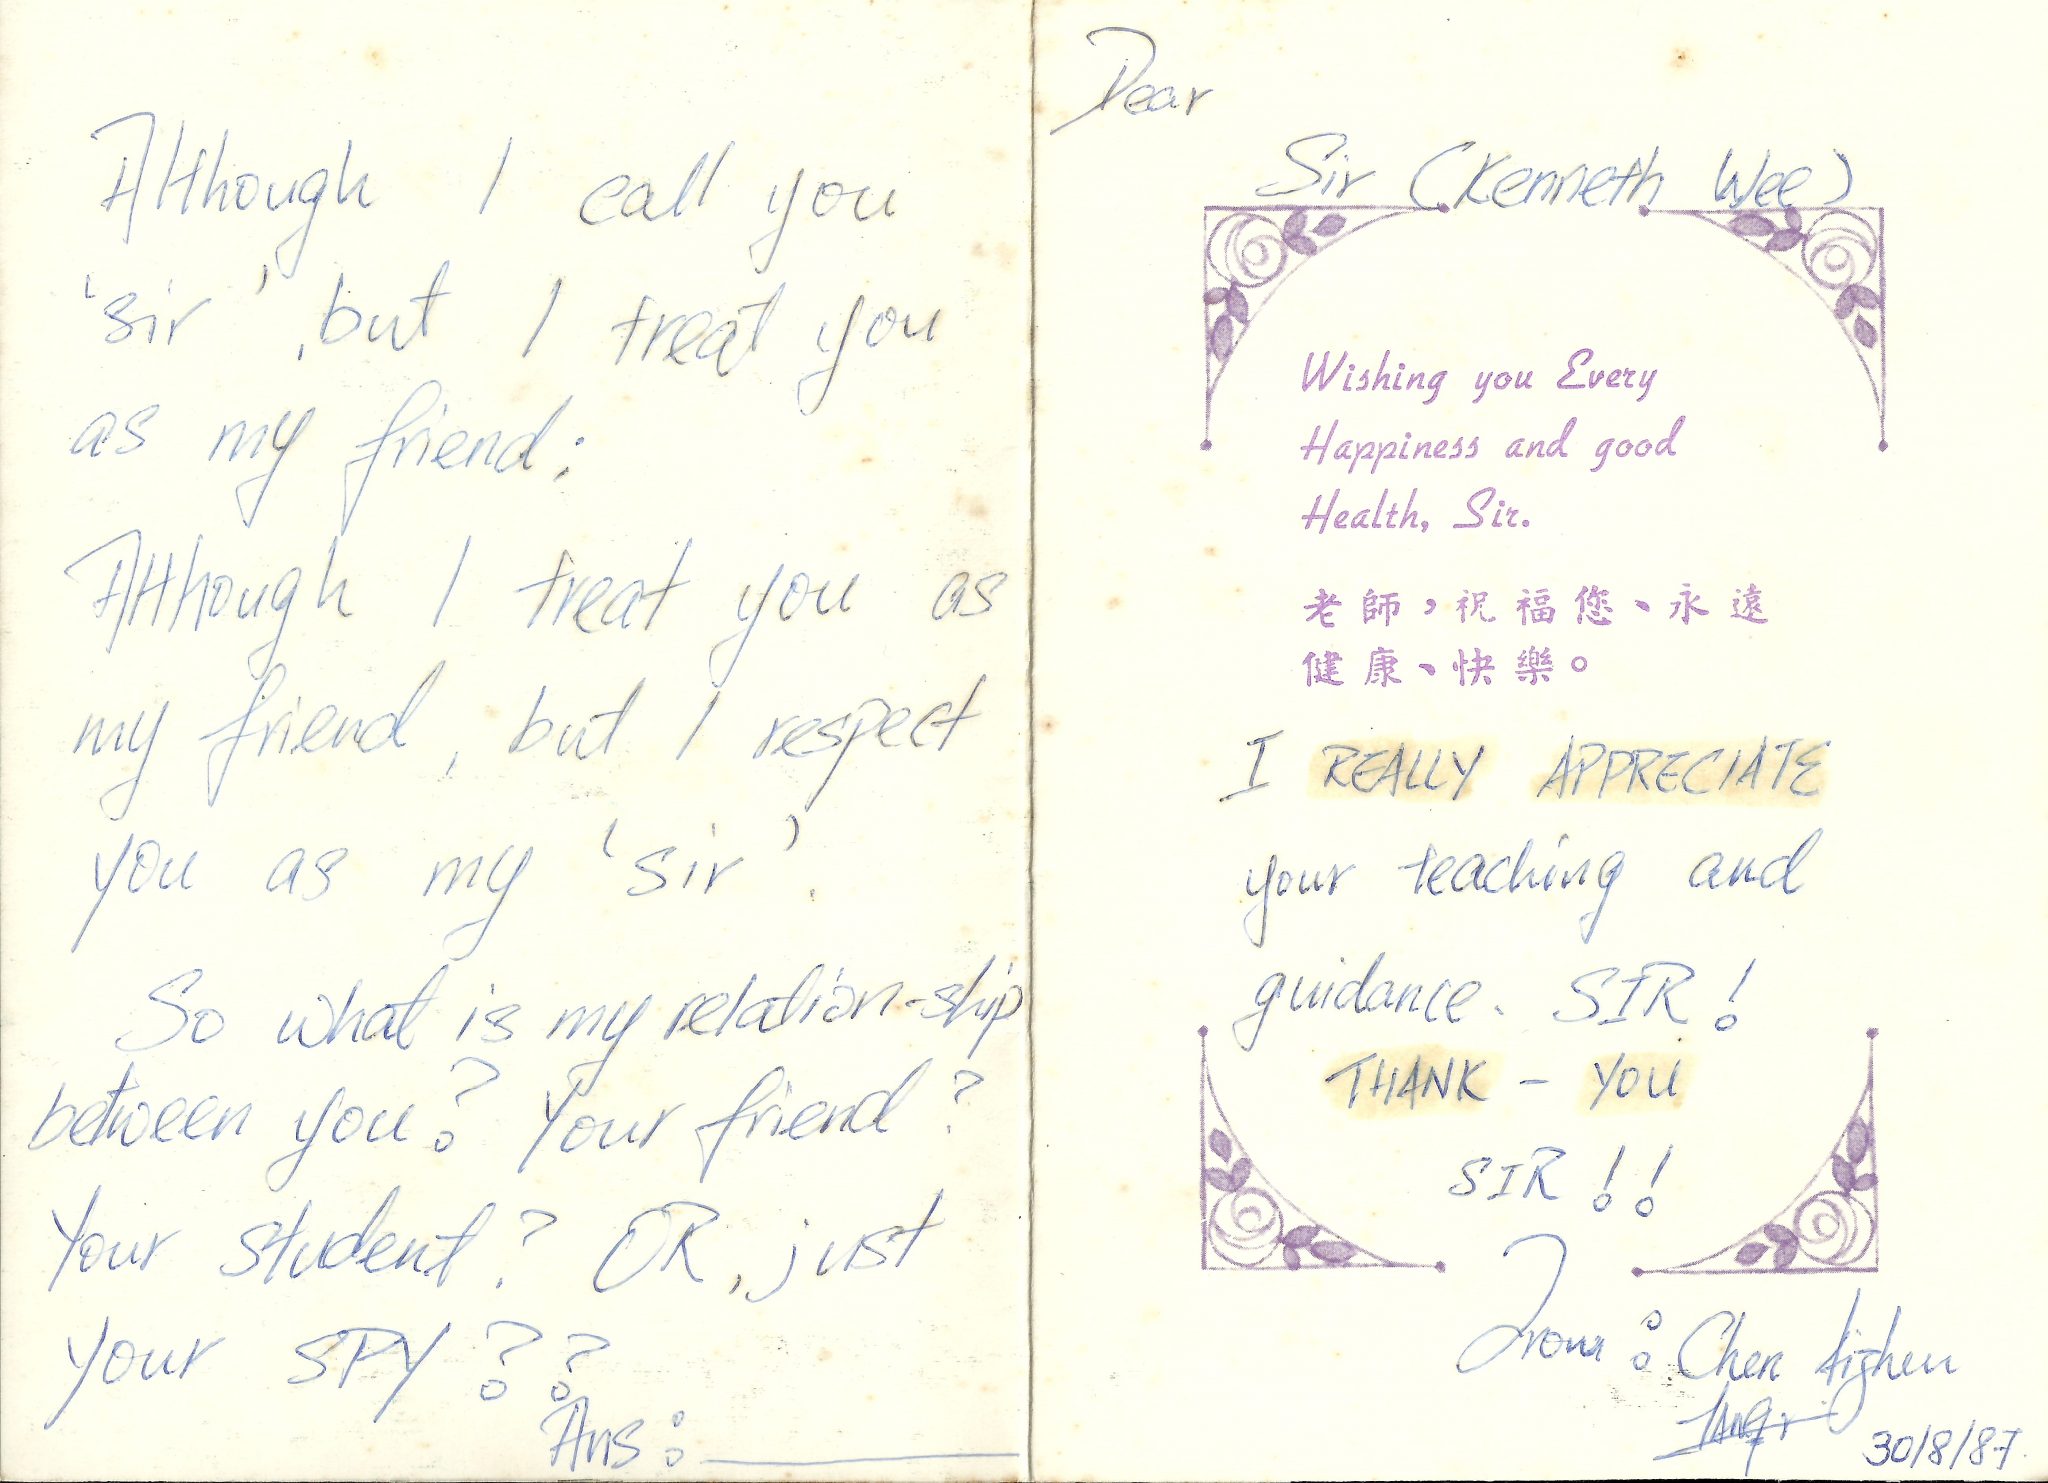 Although I call you
'sir', but I treat you
as my friend;
Although I treat you as
my friend, but I respect
you as my 'sir'.
So what is my relation-ship
between you? Your friend?
Your student? OR, just
your SPY??
Ans: ________
Dear
Sir (Kenneth Wee)
Wishing you Every
Happiness and good
Health, Sir.
老師，祝福您、永遠
健康、快樂。
I REALLY APPRECIATE
your teaching and
guidance. SIR!
THANK - YOU
SIR!!
From: Chen Aizhen
30/8/87.